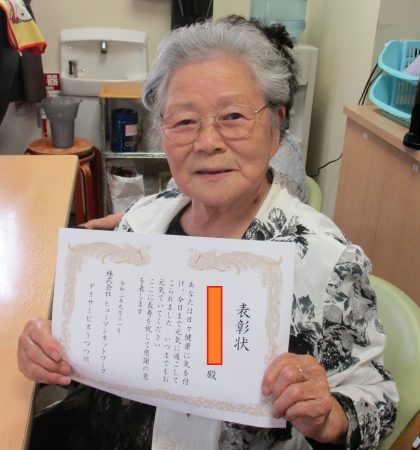 表彰状
殿
あなたは日々健康に気を付
け、今日まで元気に過ごして
こられました いつまでもお
元気でいてください
ここに長寿を祝して感謝の意
を表します
令和二年九月二一日
株式会社 ヒューマンネットワーク
デイサービスうつつ川